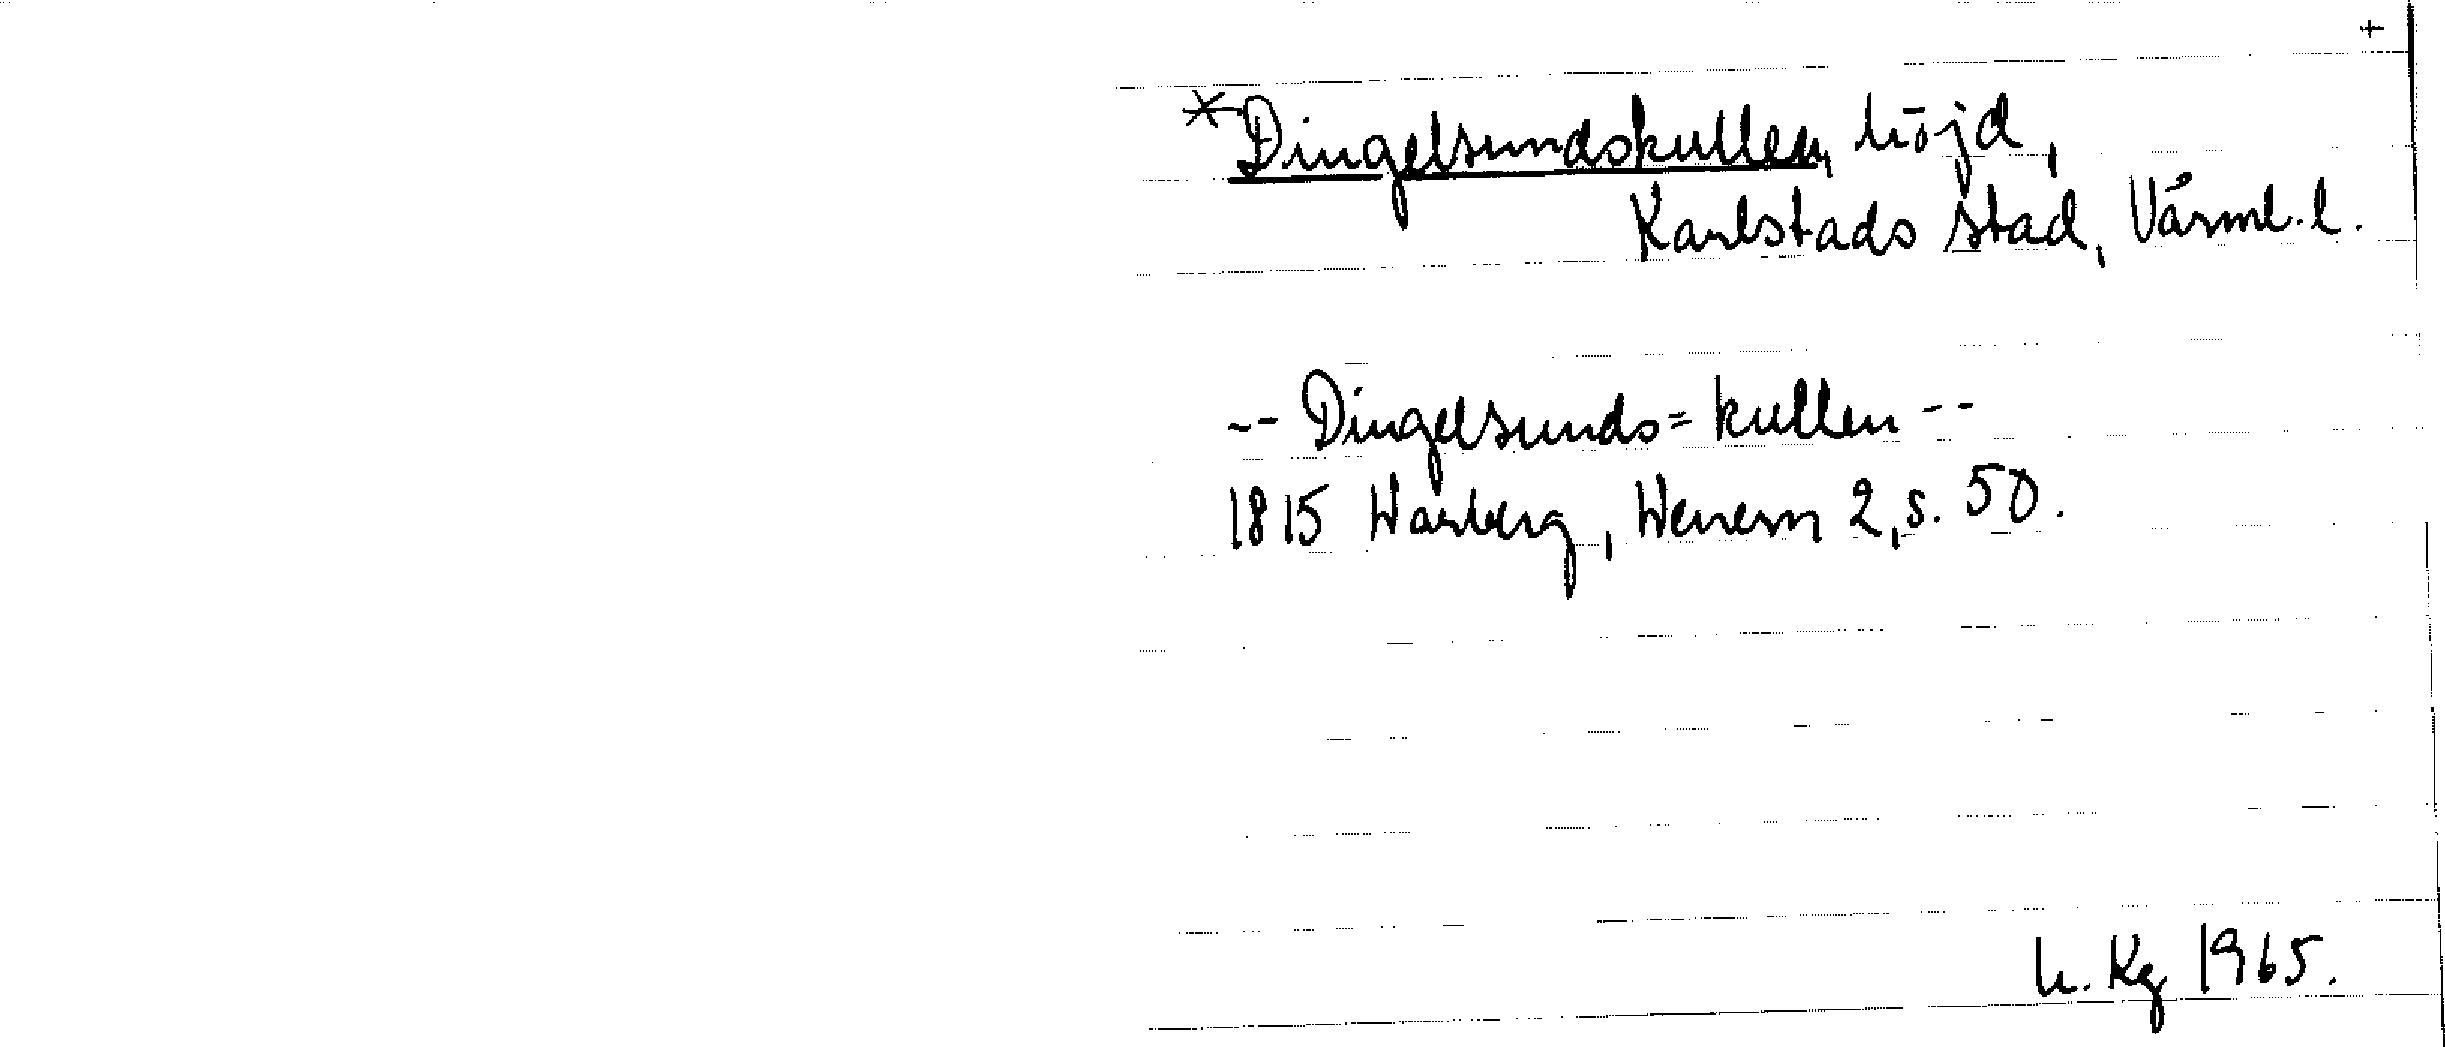 +
*Dingelsundskullen, höjd,
Karlstads stad, Värml. l.
-- Dingelsunds= kullen --
1815 Warberg, Wenern 2, s. 50.
h. Kg 1965.